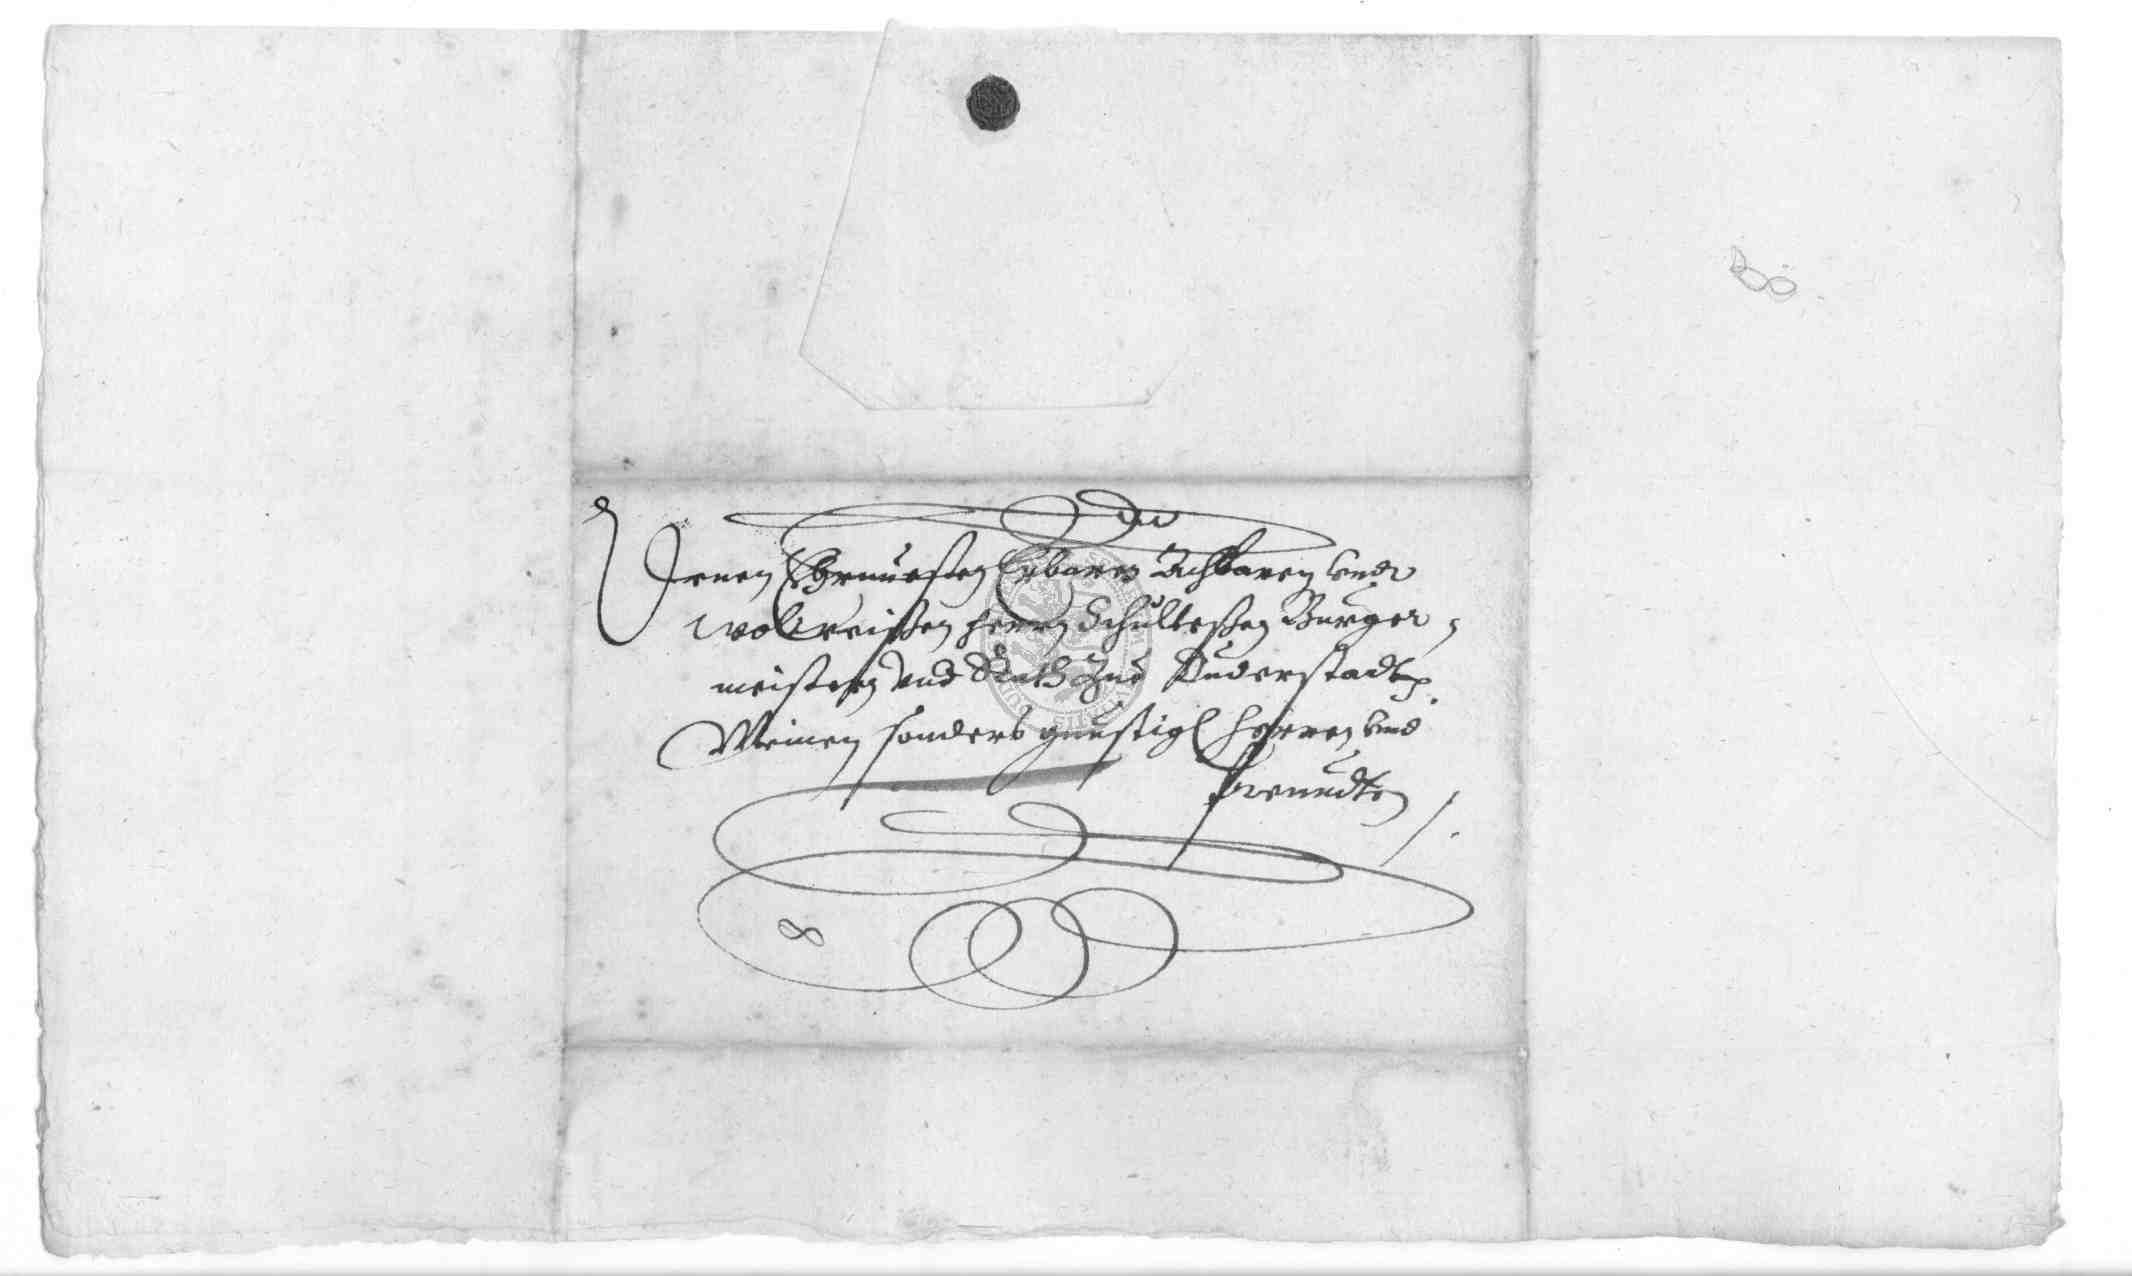 Denen Ehrnuesten Erbaren Achtbaren vnd
wolweissen herrn Schultessen Burger,
meistern vnd Rath Zue Duderstadt
Meinen sonders gunstig herren vnd
freundten /.